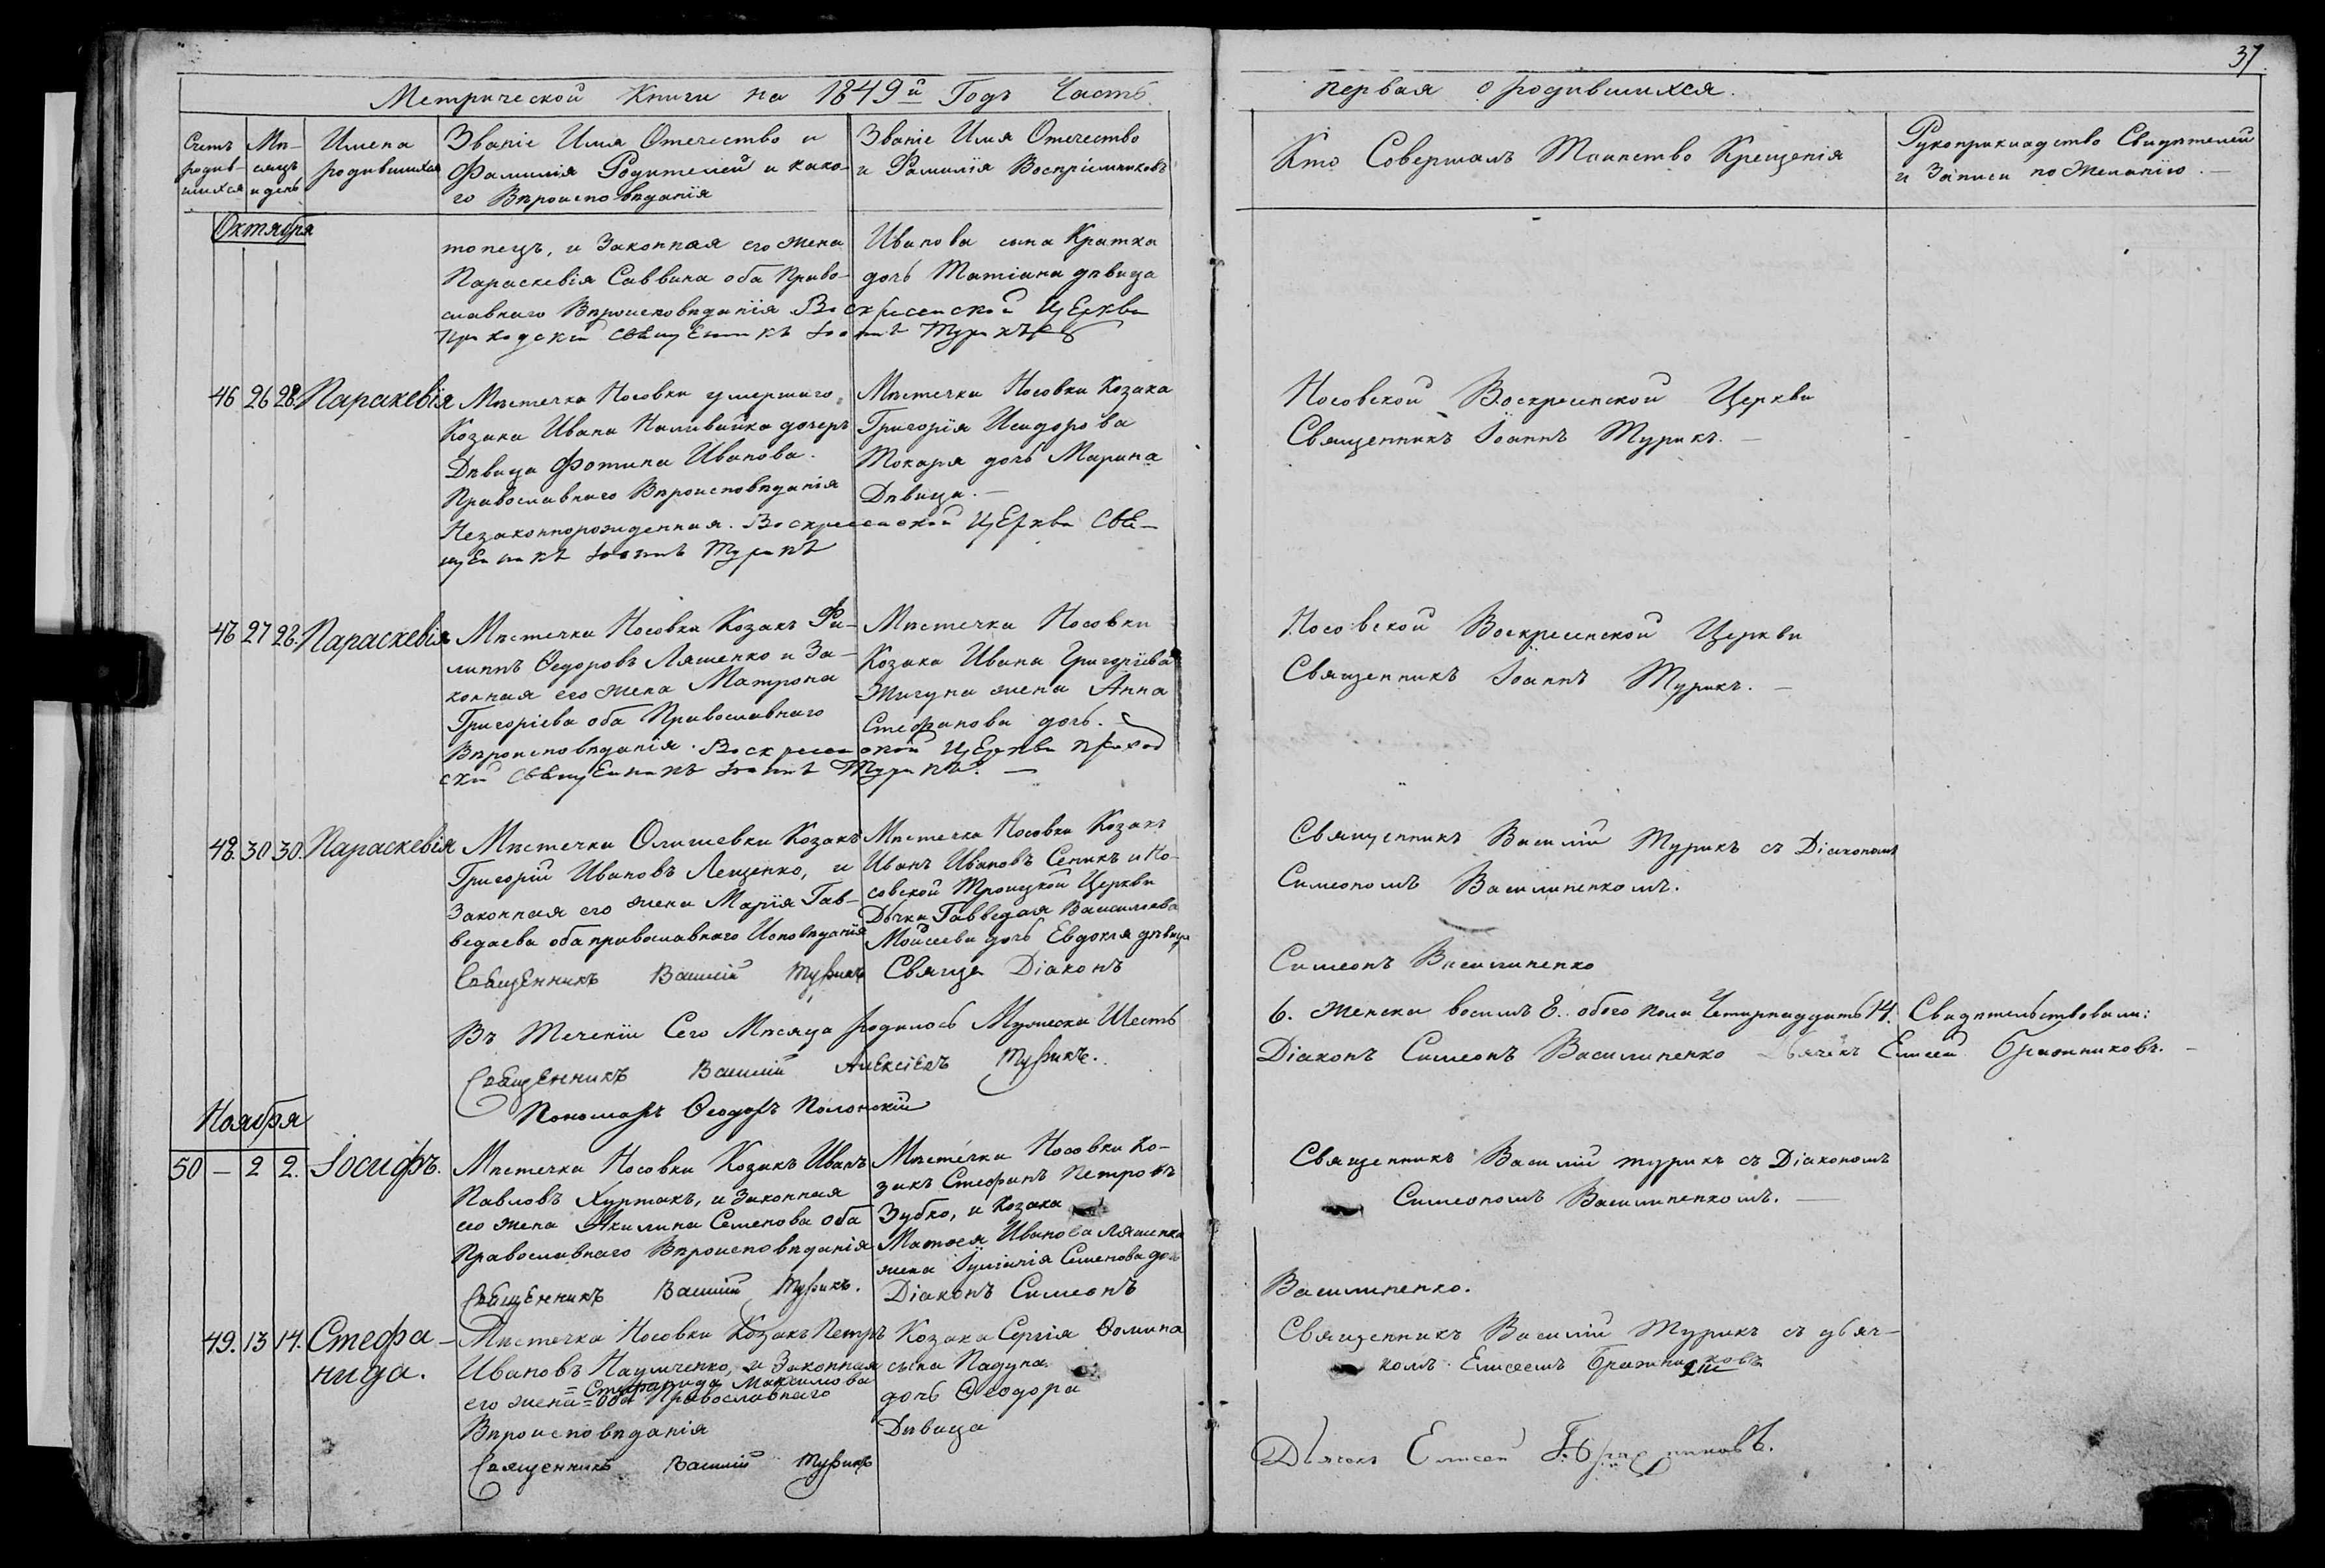 37.
Метрической Книги на 1849й Годъ Часть
первая о родившихся.
Счетъ родив- шихся
Мѣ- сяцъ и день
Имена родившихся
Званіе Имя Отечество и
Фамилія Родителей и како-
го Вѣроисповѣданія
Званіе Имя Отечество
и Фамилія Воспріемниковъ
Кто Совершалъ Таинство Крещенія
Рукоприкладство Свидѣтелей
и Записи по Желанію.
Октября
топецъ, и Законная его жена
Параскевія Саввина оба Право-
славнаго Вѣроисповѣданія Воскресенской Церкви
Приходскій Священникъ Іоаннъ Турикъ
Иванова сына Кратка
дочь Татіана дѣвица
46 26 28. Паракевія
Мѣстечка Носовки умершаго
Козака Ивана Наливайка дочерь
Дѣвица Фотина Иванова.
Православнаго Вѣроисповѣданія
Незаконнорожденная. Воскресенской Церкви Свя-
щенникъ Іоаннъ Турикъ
Мѣстечка Носовки Козака
Григорія Исидорова
Токаря дочь Марина
Дѣвица.
Носовской Воскресенской Церкви
Священникъ Іоаннъ Турикъ.
47 27 28. Параскевія
Мѣстечка Носовки Козакъ Фи-
липпъ Ѳедоровъ Ляшенко и За-
конная его жена Матрона
Григоріева оба Православнаго
Вѣроисповѣданія. Воскресенской Церкви приход
скій Священникъ Іоаннъ Турикъ.
Мѣстечка Носовки
Козака Ивана Григоріева
Жигуна жена Анна
Стефанова дочь.
Носовской Воскресенской Церкви
Священникъ Іоаннъ Турикъ.
48. 30 30. Параскевія
Мѣстечка Олишевки Козакъ
Григорій Ивановъ Лещенко, и
Законная его жена Марія Гав-
ведаева оба православнаго Исповѣданія
Священникъ Василій Турикъ
Мѣстечка Носовки Козакъ
Иванъ Ивановъ Сеникъ и Но-
совской Троицкой Церкви
Дьчка Гавведая Васильева
Мойсеева дочь Евдокія дѣвица
Свяще Діаконъ
Священникъ Василій Турикъ съ Діакономъ
Симеономъ Василипенкомъ.
Симеонъ Василипенко
Въ Теченіи Сего Мѣсяца родилось Мужеска Шесть
6. Женска восимъ 8. обого пола Четирнадцать 14. Свидѣтельствовали:
Священникъ Василій Алексіевъ Турикъ.
Діаконъ Симеонъ Василипенко Дьячекъ Елисей Бражниковъ.
Пономарь Ѳеодоръ Полонскій
Ноября
50 — 2 2. Іосифъ.
Мѣстечка Носовки Козакъ Иванъ
Павловъ Хуртакъ, и Законная
его жена Акилина Семенова оба
Православнаго Вѣроисповѣданія
Священникъ Василій Турикъ.
Мѣстечка Носовки Ко-
закъ Стефанъ Петровъ
Зубко, и Козака
Матѳея Иванова Ляшенка
жена Іуліанія Семенова дочь
Діаконъ Симеонъ
Священникъ Василій турикъ съ Діакономъ
Симеономъ Василипенкомъ.
Василипенко.
49. 13 14. Стефа-
нида.
Мѣстечка Носовки Козакъ Петръ
Ивановъ Наумченко, и Законная
=Стефанида Максимова
его жена= оба Православнаго
Вѣроисповѣданія
Священникъ Василій Турикъ
Козака Сергія Ѳомина
сына Падуна
дочь Ѳеодора
Дѣвица
Священникъ Василій Турикъ съ дьяч-
комъ Елисеемъ Бражниковъ
Дьячокъ Елисей Бражниковъ.